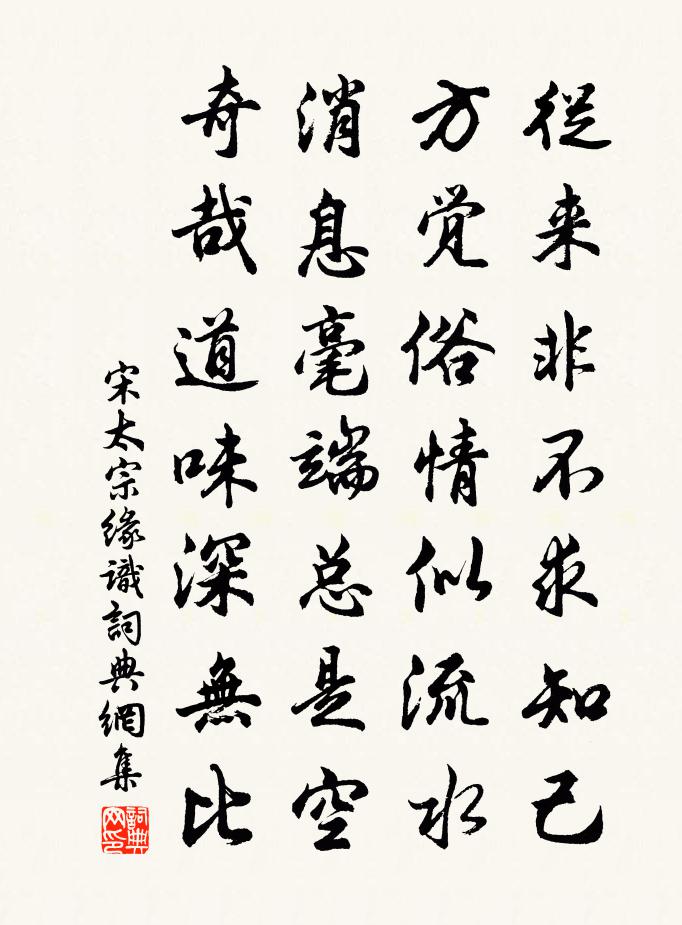 從来非不求知己
方覚俗情似流水
消息毫端总是空
奇哉道味深無比
宋太宗緣識詞典網集
詞典
网印